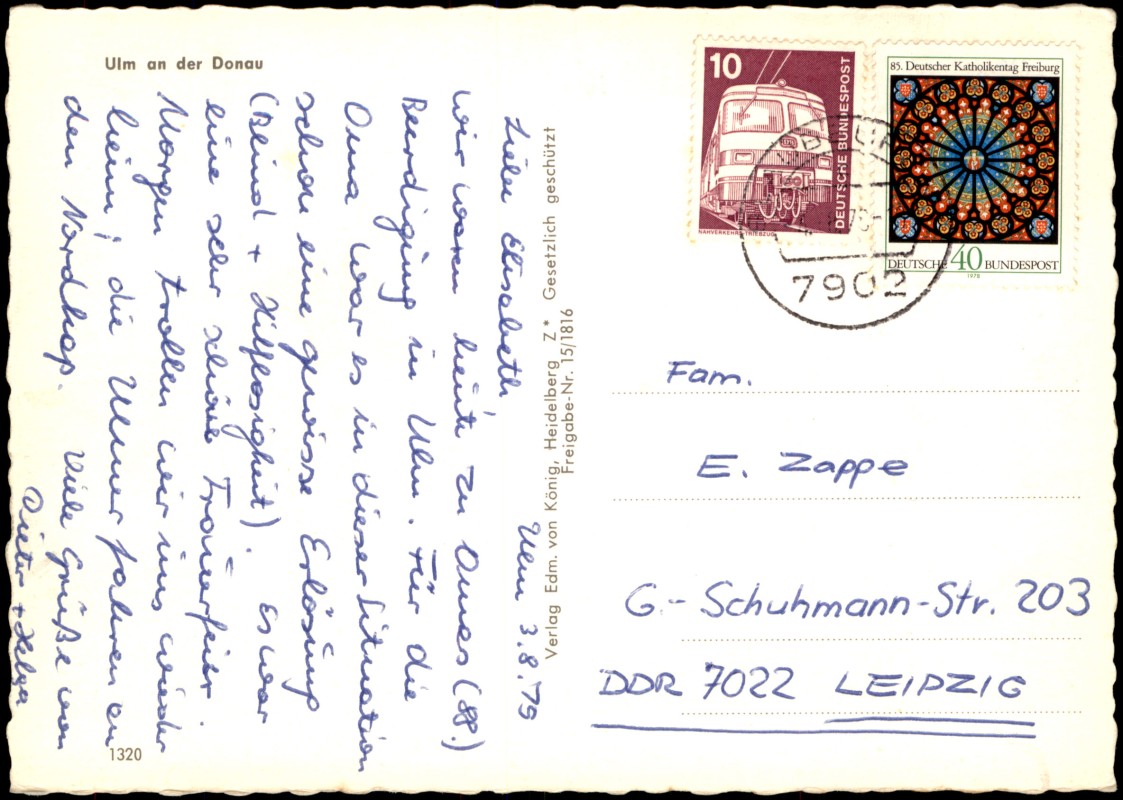 Ulm an der Donau
Ulm 3.8.79
Liebe Elisabeth,
wir waren heute zu Omas (88.)
Beerdigung in Ulm. Für die
Oma war es in dieser Situation
schon eine gewisse Erlösung
(Beind + Hilflosigkeit). Es war
eine sehr schöne Trauerfeier.
Morgen trollen wir uns wieder
heim, die Ulmer fahren an
den Nordkap. Viele Grüße von
Dieter + Helga
1320
Verlag Edm. von König, Heidelberg Z* Gesetzlich geschützt
Freigabe-Nr. 15/1816
10
DEUTSCHE BUNDESPOST
NAHVERKEHRS-TRIEBZUG
85. Deutscher Katholikentag Freiburg
DEUTSCHE 40 BUNDESPOST
1978
7902
Fam.
E. Zappe
G.-Schuhmann-Str. 203
DDR 7022 LEIPZIG